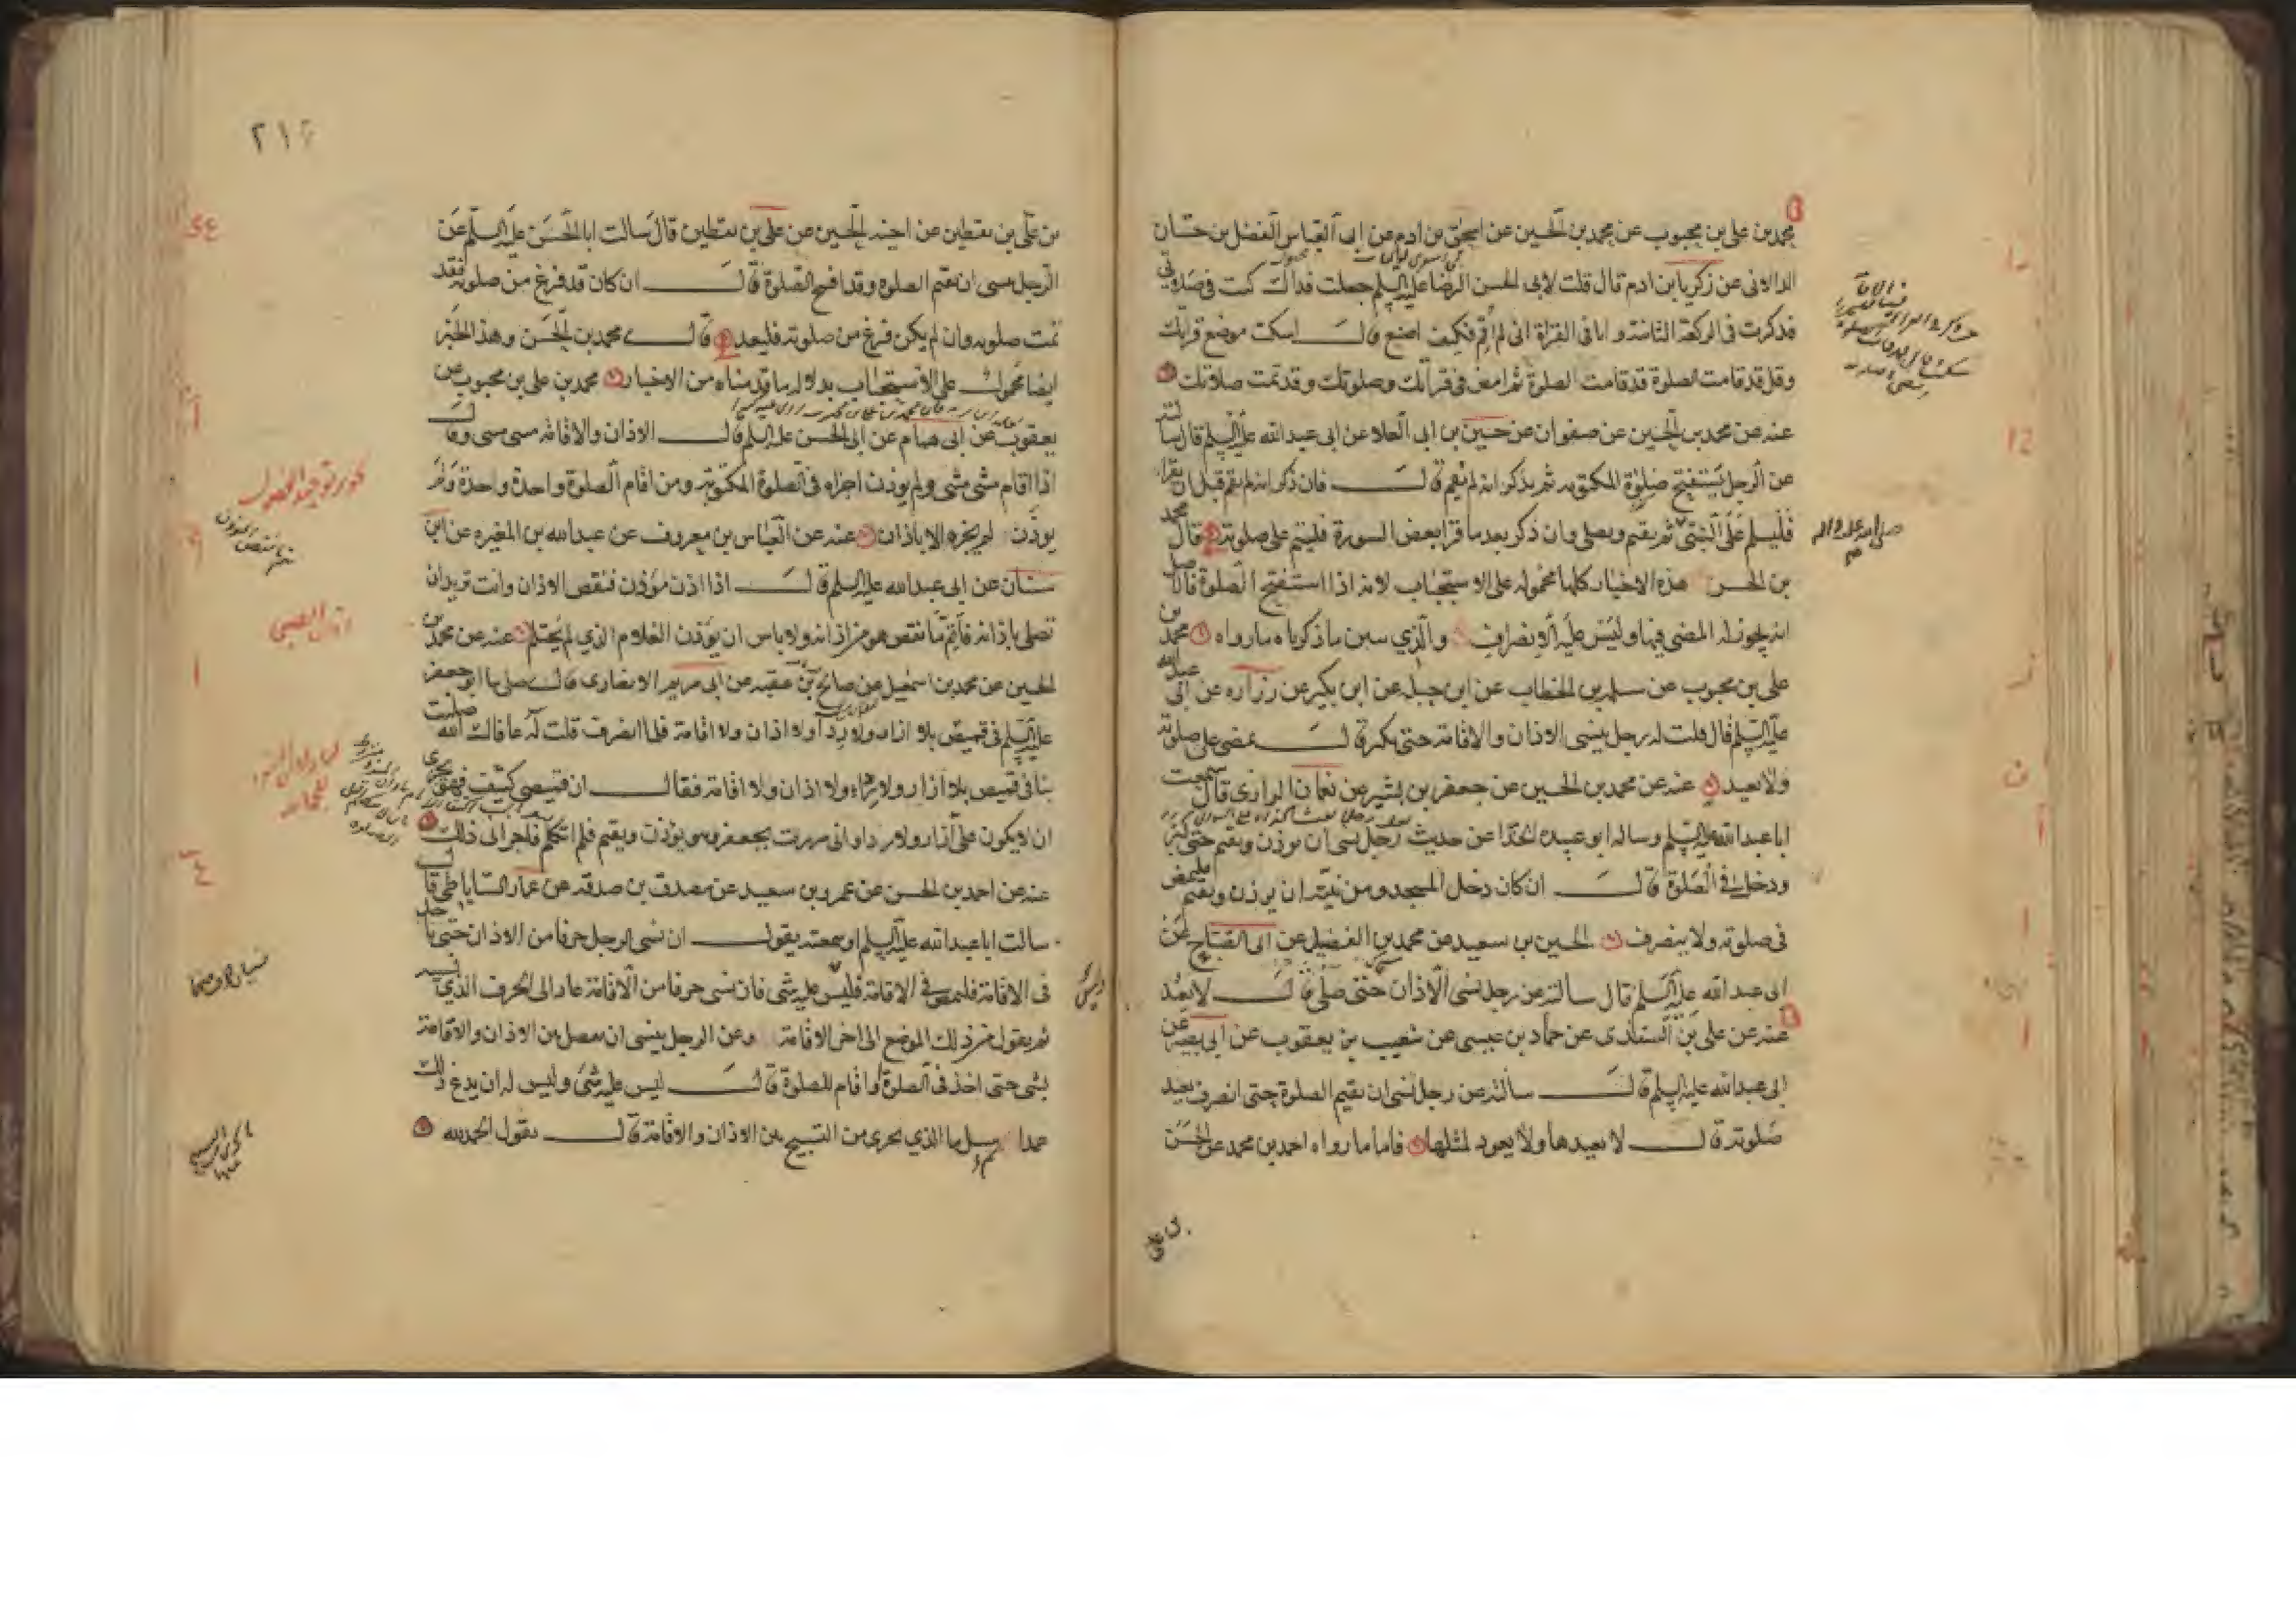 محمد بن علي بن محبوب عن محمد بن الحسين عن اسحق بن ادم عن ابى العباس الفضل بن حسان
الدالانى عن زكريا بن ادم قال قلت لابى الحسن الرضا عليه السلم جعلت فداك كنت فى صلوتى
فذكرت فى الركعة الثانية و انا فى القراة انى لم اقم فكيف اصنع قال اسكت موضع قراتك
وقل قد قامت الصلوة قد قامت الصلوة ثم امض فى قراتك وصلوتك وقد تمت صلاتك
عنه عن محمد بن الحسين عن صفوان عن حسين بن ابى العلا عن ابى عبد الله عليه السلم قال سالته
عن الرجل يستفتح صلوة المكتوبه ثم يذكر انه لم يقم قال فان ذكر انه لم يقم قبل ان يقرا
فليسلم على النبى ثم يقيم ويصلى وان ذكر بعد ما قرا بعض السورة فليتم على صلوته قال محمد
بن الحسن هذه الاخبار كلها محموله على الاستحباب لانه اذا استفتح الصلوة فالاصل
انه يجوز له المضى فيها وليس عليه الانصراف والذي يبين ما ذكرناه ما رواه محمد بن
على بن محبوب عن سلمه بن الخطاب عن ابن جبله عن ابن بكير عن زراره عن ابى عبد الله
عليه السلم قال قلت له رجل ينسى الاذان والاقامة حتى يكبر قال يمضى على صلوته
ولا يعيد عنه عن محمد بن الحسين عن جعفر بن بشير عن نعمان الرازى قال سمعت
ابا عبد الله عليه السلم وساله ابو عبيده الحذا عن حديث رجل نسى ان يوذن ويقيم حتى كبر
ودخل فى الصلوة قال ان كان دخل المسجد ومن نيته ان يوذن ويقيم فليمض
فى صلوته ولا ينصرف الحسين بن سعيد عن محمد بن الفضيل عن ابى الصباح عن
ابى عبد الله عليه السلم قال سالته عن رجل نسى الاذان حتى صلى قال لا يعيد
عنه عن على بن السندى عن حماد بن عيسى عن شعيب بن يعقوب عن ابى بصير عن
ابى عبد الله عليه السلم قال سالته عن رجل نسى ان يقيم الصلوة حتى انصرف يعيد
صلوته قال لا يعيدها ولا يعود لمثلها فاما ما رواه احمد بن محمد عن الحسن
٢١٦
بن على بن يقطين عن اخيه الحسين عن على بن يقطين قال سالت ابا الحسن عليه السلم عن
الرجل ينسى ان يقيم الصلوه وقد افتتح الصلوة قال ان كان قد فرغ من صلوته فقد
تمت صلوته وان لم يكن فرغ من صلوته فليعد قال محمد بن الحسن وهذا الخبر
ايضا محمول على الاستحباب بدلالة ما قدمناه من الاخبار محمد بن على بن محبوب عن
يعقوب عن ابى همام عن ابى الحسن عليه السلم قال الاذان والاقامه مثنى مثنى وقال
اذا اقام مثنى مثنى ولم يوذن اجزاه فى الصلوة المكتوبة ومن اقام الصلوة واحدة واحدة ولم
يوذن لم يجزه الا باذان عنه عن العباس بن معروف عن عبد الله بن المغيره عن ابن
سنان عن ابى عبد الله عليه السلم قال اذا اذن موذن فنقص الاذان وانت تريد ان
تصلى باذانه فاتم ما نقص هو من اذانه ولا باس ان يوذن الغلام الذي لم يحتلم عنه عن محمد بن
الحسين عن محمد بن اسمعيل عن صالح بن عقبه عن ابى مريم الانصارى قال صلى بنا ابو جعفر
عليه السلم فى قميص بلا ازار ولا رداء ولا اذان ولا اقامة فلما انصرف قلت له عافاك الله صليت
بنا فى قميص بلا ازار ولا رداء ولا اذان ولا اقامة فقال ان قميصى كثيف فهو يجزى
ان لا يكون على ازار ولا رداء وانى مررت بجعفر وهو يوذن ويقيم فلم اتكلم فاجزانى ذلك
عنه عن احمد بن الحسن عن عمرو بن سعيد عن مصدق بن صدقه عن عمار الساباطى قال
سالت ابا عبد الله عليه السلم او سمعته يقول ان نسى الرجل حرفا من الاذان حتى ياخذ
فى الاقامة فليمض فى الاقامة فليس عليه شى فان نسى حرفا من الاقامة عاد الى الحرف الذي نسيه
ثم يقول من ذلك الموضع الى اخر الاقامة وعن الرجل ينسى ان يفصل بين الاذان والاقامة
بشى حتى اخذ فى الصلوة او اقام للصلوة قال ليس عليه شى وليس له ان يدع ذلك
عمدا سئل ما الذي يجزى من التسبيح بين الاذان والاقامة قال يقول الحمد لله